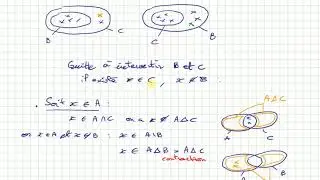 B C C B
Quitte à intervertir B et C
il existe x ∈ C, x ∉ B.
• Soit x ∈ A:
x ∈ A∩C on a x ∉ A△C
or x ∈ A et x ∉ B : x ∈ A\B
x ∈ A△B = A△C
contradiction
A△C
A C
A△B
A B